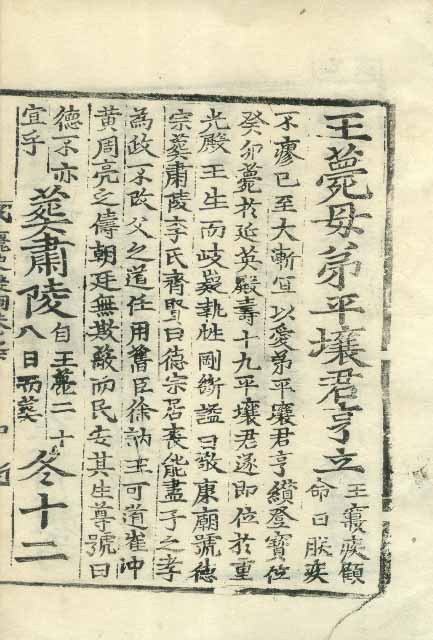 王薨母弟平壤君亨立
王寢疾顧
命曰朕疾
不瘳已至大漸宜以愛弟平壤君亨纘登寶位
癸卯薨於延英殿壽十九平壤君遂即位於重
光殿 王生而岐嶷執性剛斷謚曰敬康廟號德
宗葬肅陵李氏齊賢曰德宗居喪能盡子之孝
為政不改父之道任用舊臣徐訥王可道崔冲
黃周亮之儔朝廷無欺蔽而民安其生尊號曰
德不亦
宜乎
葬肅陵
自王薨二十
八日而葬
冬十二